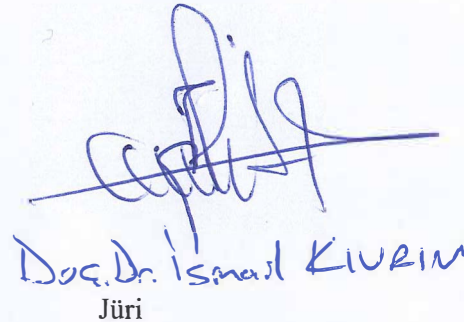 Doç. Dr. İsmail KIVRIM
Jüri